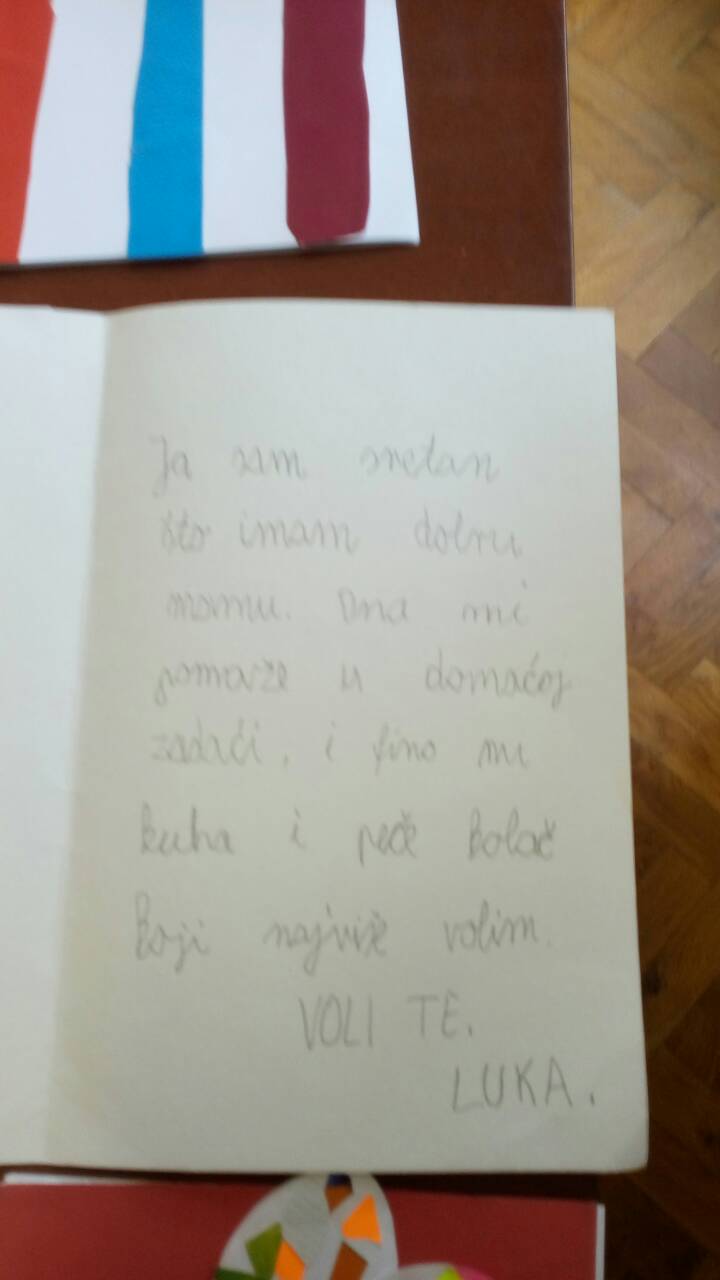 Ja sam sretan
što imam dobru
mamu. Ona mi
pomaže u domaćoj
zadaći, i fino mi
kuha i peče kolač
koji najviše volim.
VOLI TE.
LUKA.